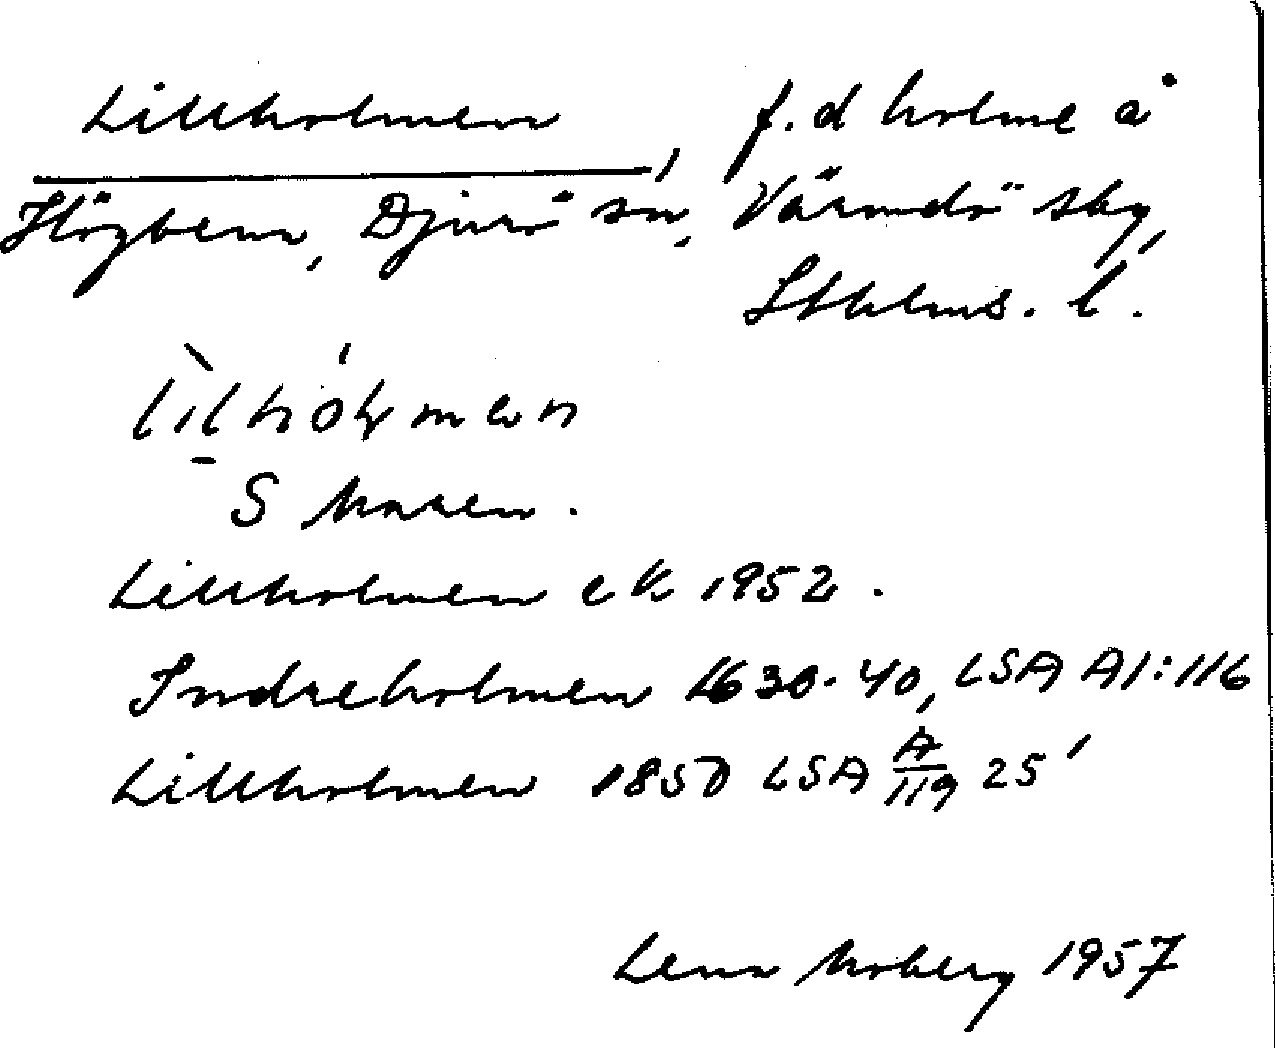 Lillholmen, f.d holme å
Högbenn, Djurö sn, Värmdö skg,
Sthlms. l.
lìlhólmen
S Maren.
Lillholmen ek 1952.
Indreholmen 1630-40, LSA A1:116
Lillholmen 1850 LSA A/119 25'
Lena Moberg 1957